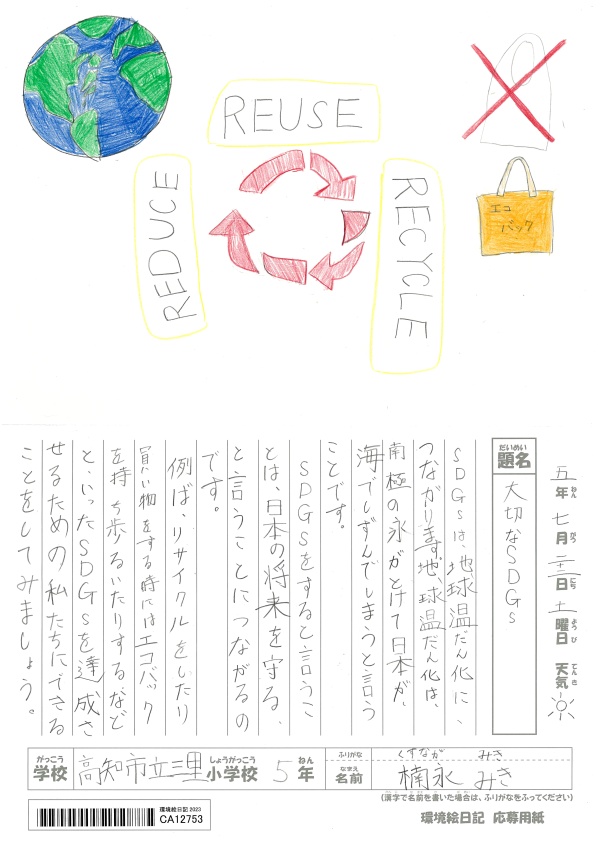 REUSE
REDUCE
RECYCLE
エコ
バック
五年七月二十二日土曜日 天気
ねん がつ にち ようび てんき
だいめい
題名
大切なSDGs
SDGsは、地球温だん化に、
つながります。地球温だん化は、
南極の氷がとけて日本が、
海でしずんでしまうと言う
ことです。
SDGsをすると言うこ
とは、日本の将来を守る、
と言うことにつながるの
です。
例ば、リサイクルをしたり
買い物をする時にはエコバック
を持ち歩るいたりするなど
といったSDGsを達成さ
せるための私たちにできる
ことをしてみましょう。
がっこう しょうがっこう ねん
学校 高知市立三里小学校 5年
ふりがな くすなが みき
なまえ
名前 楠永 みき
(漢字で名前を書いた場合は、ふりがなをふってください)
環境絵日記 2023
CA12753
環境絵日記 応募用紙